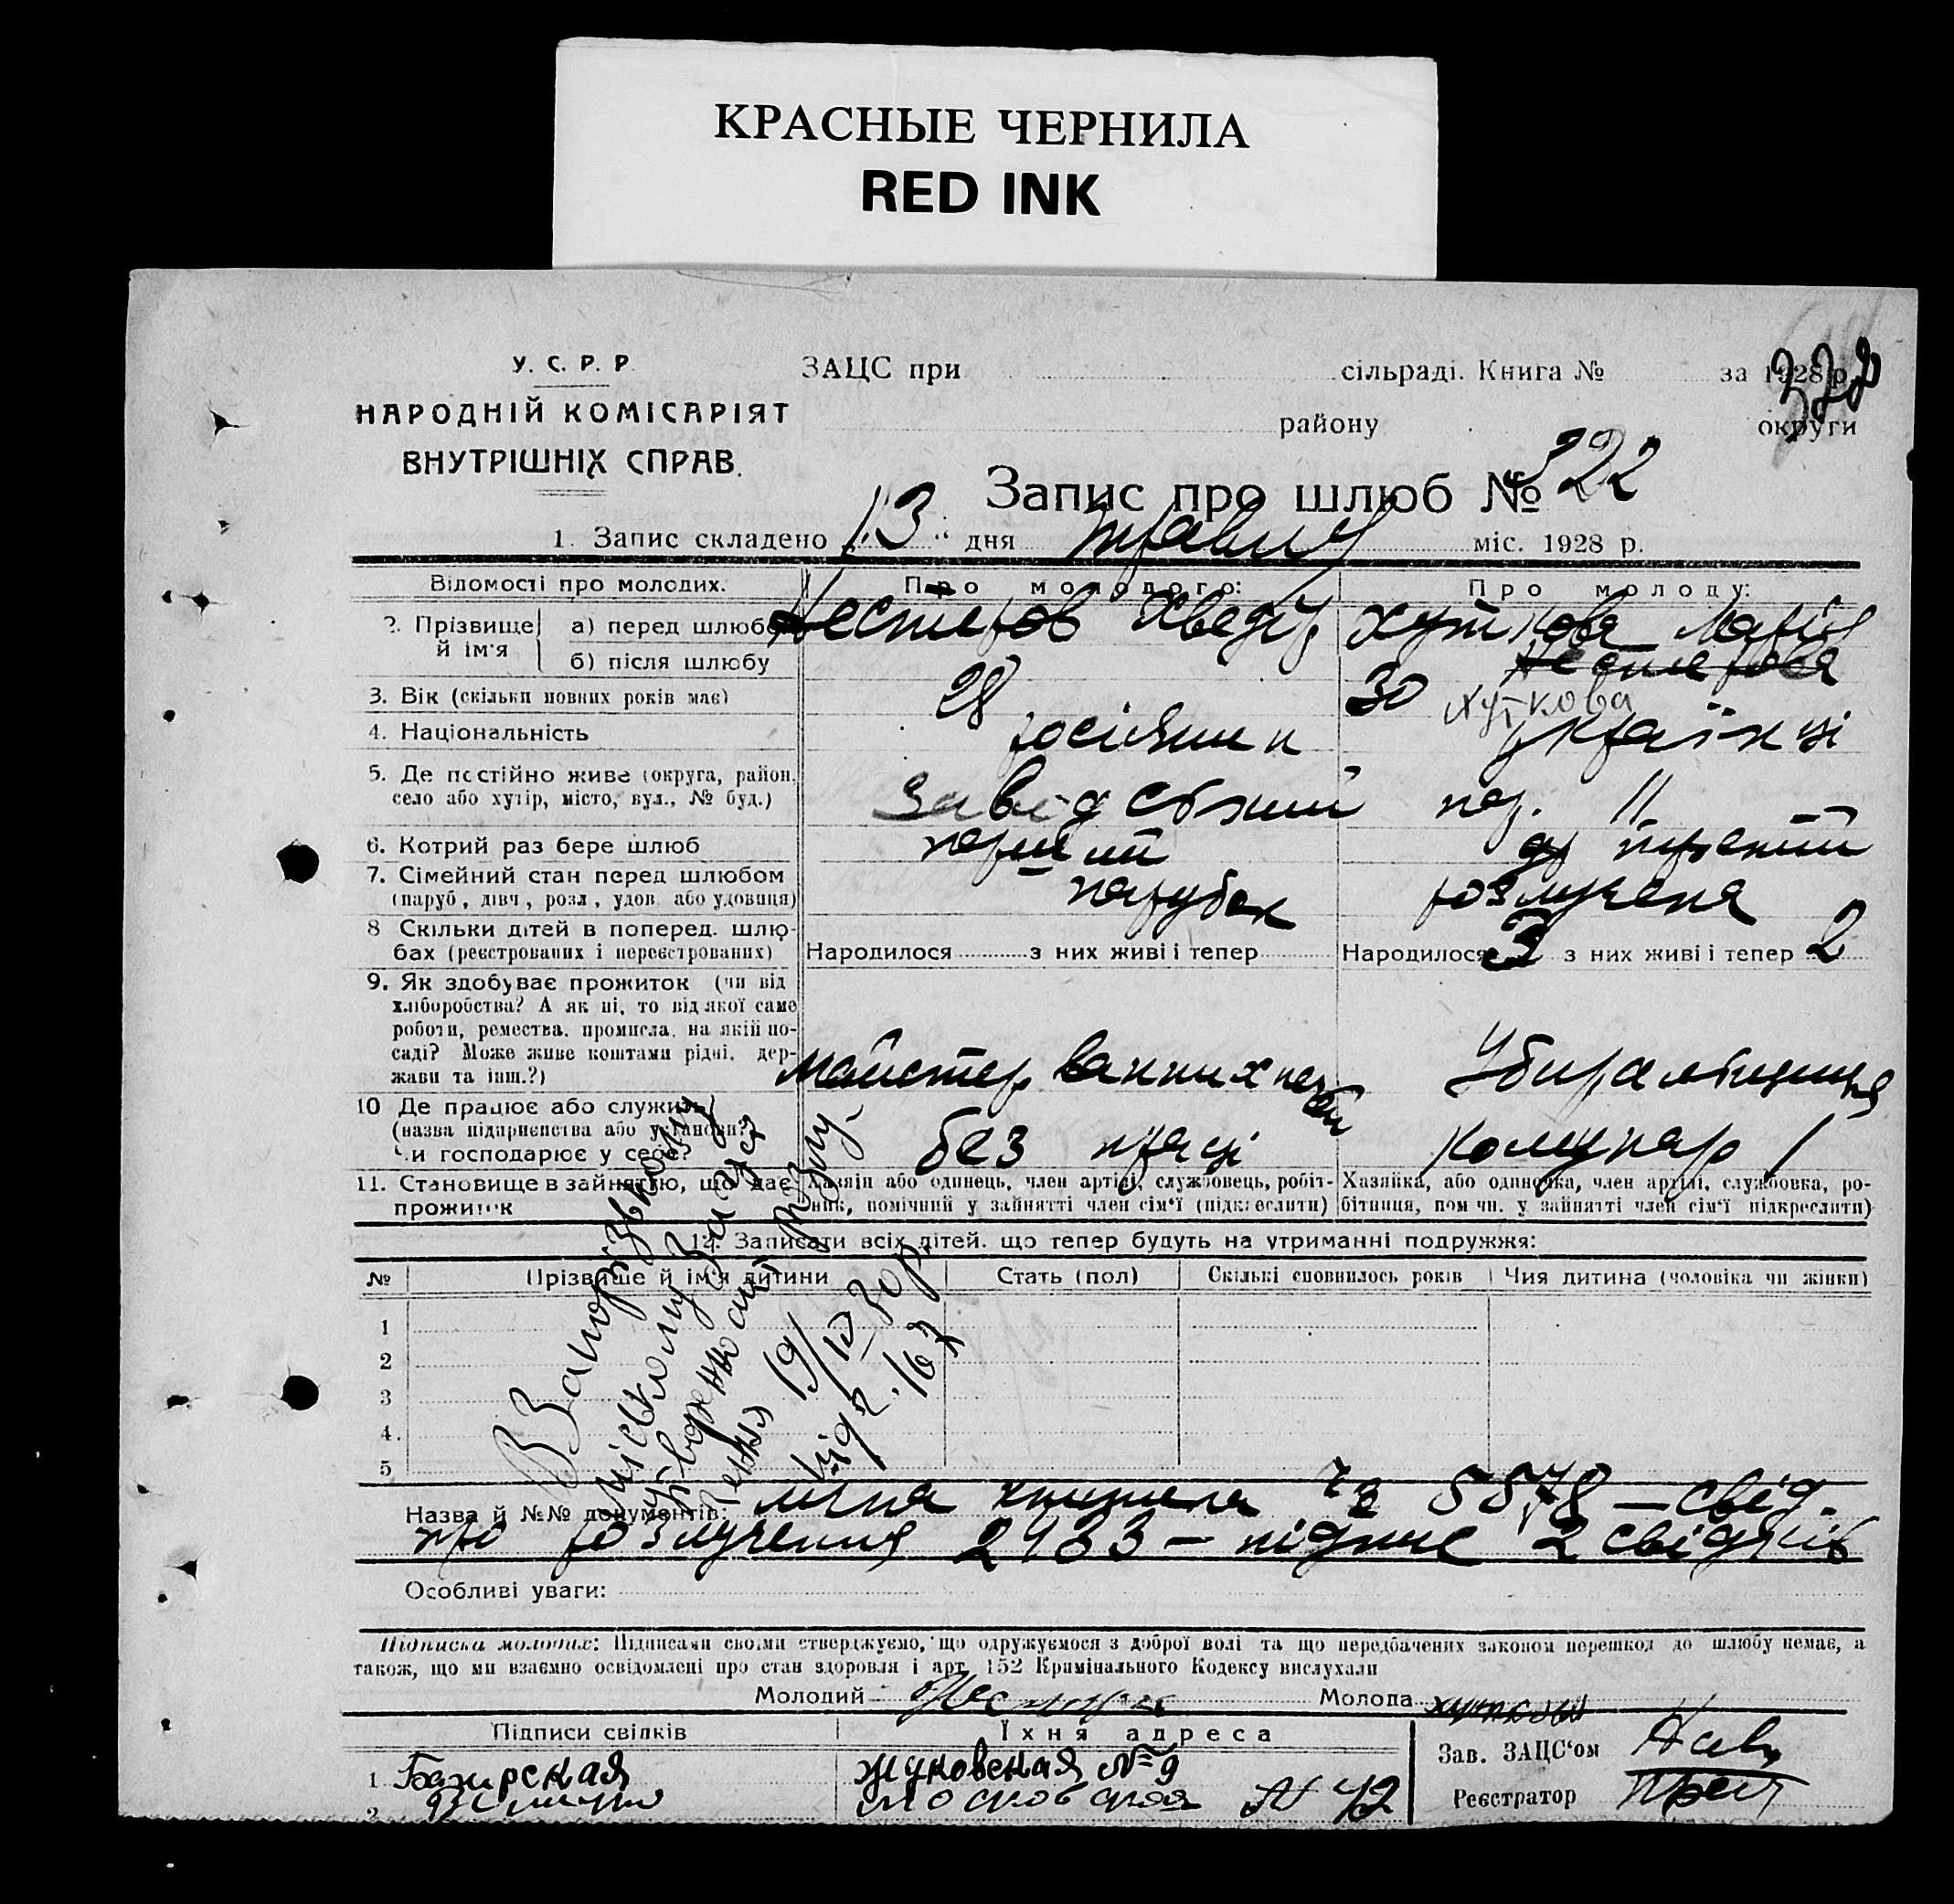 КРАСНЫЕ ЧЕРНИЛА
RED INK
У. С. Р. Р.
НАРОДНІЙ КОМІСАРІЯТ
ВНУТРІШНІХ СПРАВ.
ЗАЦС при сільраді. Книга № за 1928 р.
району округи
Запис про шлюб № 222
1. Запис складено „13“ дня травня міс. 1928 р.
Відомості про молодих. Про молодого: Про молоду:
2. Прізвище й ім'я
а) перед шлюбом Нестеров Хведір Хуткова Марія
б) після шлюбу Нестерова
Хуткова
3. Вік (скільки повних років має) 28 30
4. Національність росіянин українці
5. Де постійно живе (округа, район, село або хутір, місто, вул., № буд.) 11
6. Котрий раз бере шлюб перший
7. Сімейний стан перед шлюбом (паруб., дівч., розл., удов. або удовиця) парубок розлучена
8 Скільки дітей в поперед. шлюбах (реєстрованих і нереєстрованих) Народилося з них живі і тепер Народилося 3 з них живі і тепер 2
9. Як здобуває прожиток (чи від хліборобства? А як ні, то від якої саме роботи, ремества, промисла, на якій посаді? Може живе коштами рідні, держави та інш.?) майстер ванних печей Убиральщиця
10 Де працює або служить (назва підприємства або установи? Чи господарює у себе? без праці Комунар 1
11. Становище в зайняттю, що дає прожиток
Хазяїн або одинець, член артілі, службовець, робітник, помічний у зайнятті член сім'ї (підкреслити)
Хазяйка, або одиночка, член артілі, службовка, робітниця, помічн. у зайнятті член сім'ї підкреслити)
12. Записати всіх дітей, що тепер будуть на утриманні подружжя:
№ Прізвище й ім'я дитини Стать (пол) Скількі сповнилось років Чия дитина (чоловіка чи жінки)
1
2
3
4.
5
В Запор. Звязку
міському Загсу
19/IV 30 р.
№ 167
Назва й №№ документів: 5578 – свід.
про розлучення 2433 – підпис 2 свідків
Особливі уваги:
Підписка молодих: Підписами своїми стверджуємо, що одружуємося з доброї волі та що передбачених законом перешкод до шлюбу немає, а
також, що ми взаємно освідомлені про стан здоровля і арт. 152 Кримінального Кодексу вислухали
Молодий Молода Хуткова
Підписи свідків Їхня адреса
1 Жуковская № 9
2 Московская № 42
Зав. ЗАЦС'ом
Реєстратор